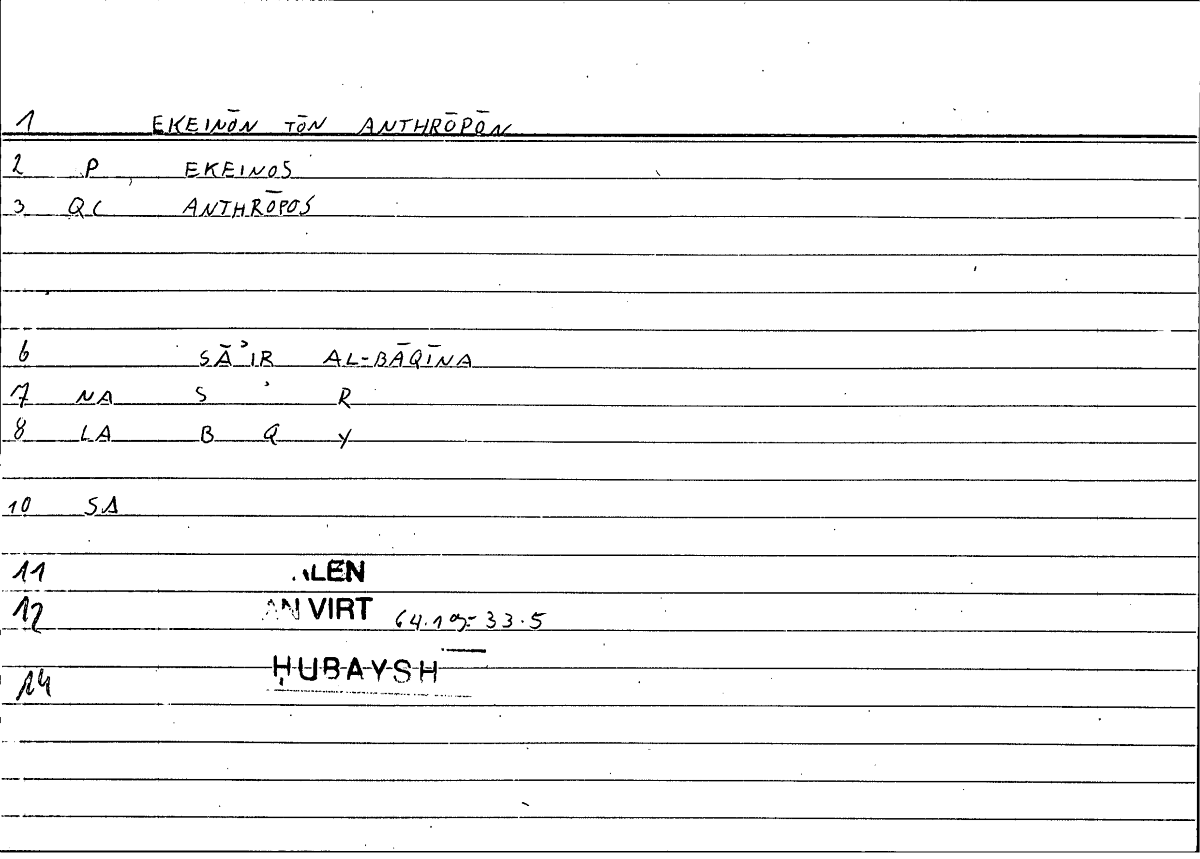 1 EKEINŌN TŌN ANTHRŌPŌN
2 P EKEINOS
3 QC ANTHRŌPOS
6 SĀʾIR AL-BĀQĪNA
7 NA S ʾ R
8 LA B Q Y
10 SA
11 ALEN
12 AN VIRT 64.19 = 33.5
14 ḤUBAYSH